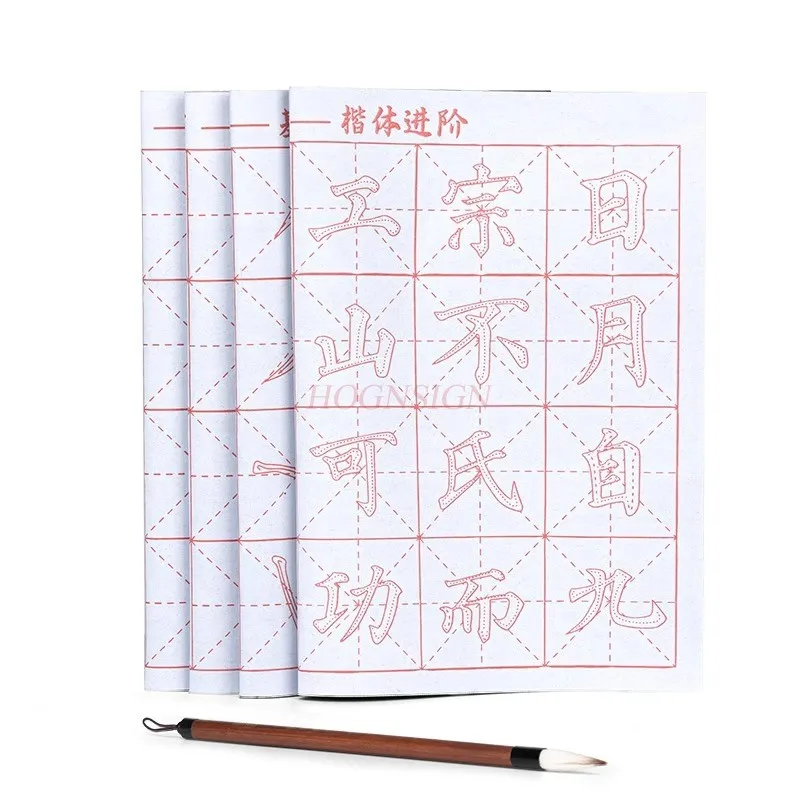 楷体进阶
工 宗 日
山 不 月
HOGNSIGN
可 氏 自
功 而 九